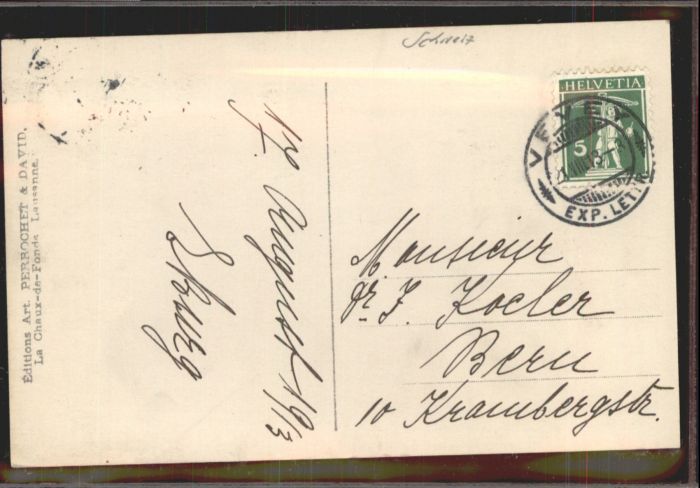 Schweiz
Éditions Art. PERROCHET & DAVID.
La Chaux-de-Fonds Lausanne.
17 August 1913
HELVETIA
5
VEVEY
EXP. LETTR.
Monsieur
Dr. F. Koeler
Bern
10 Krambergstr.